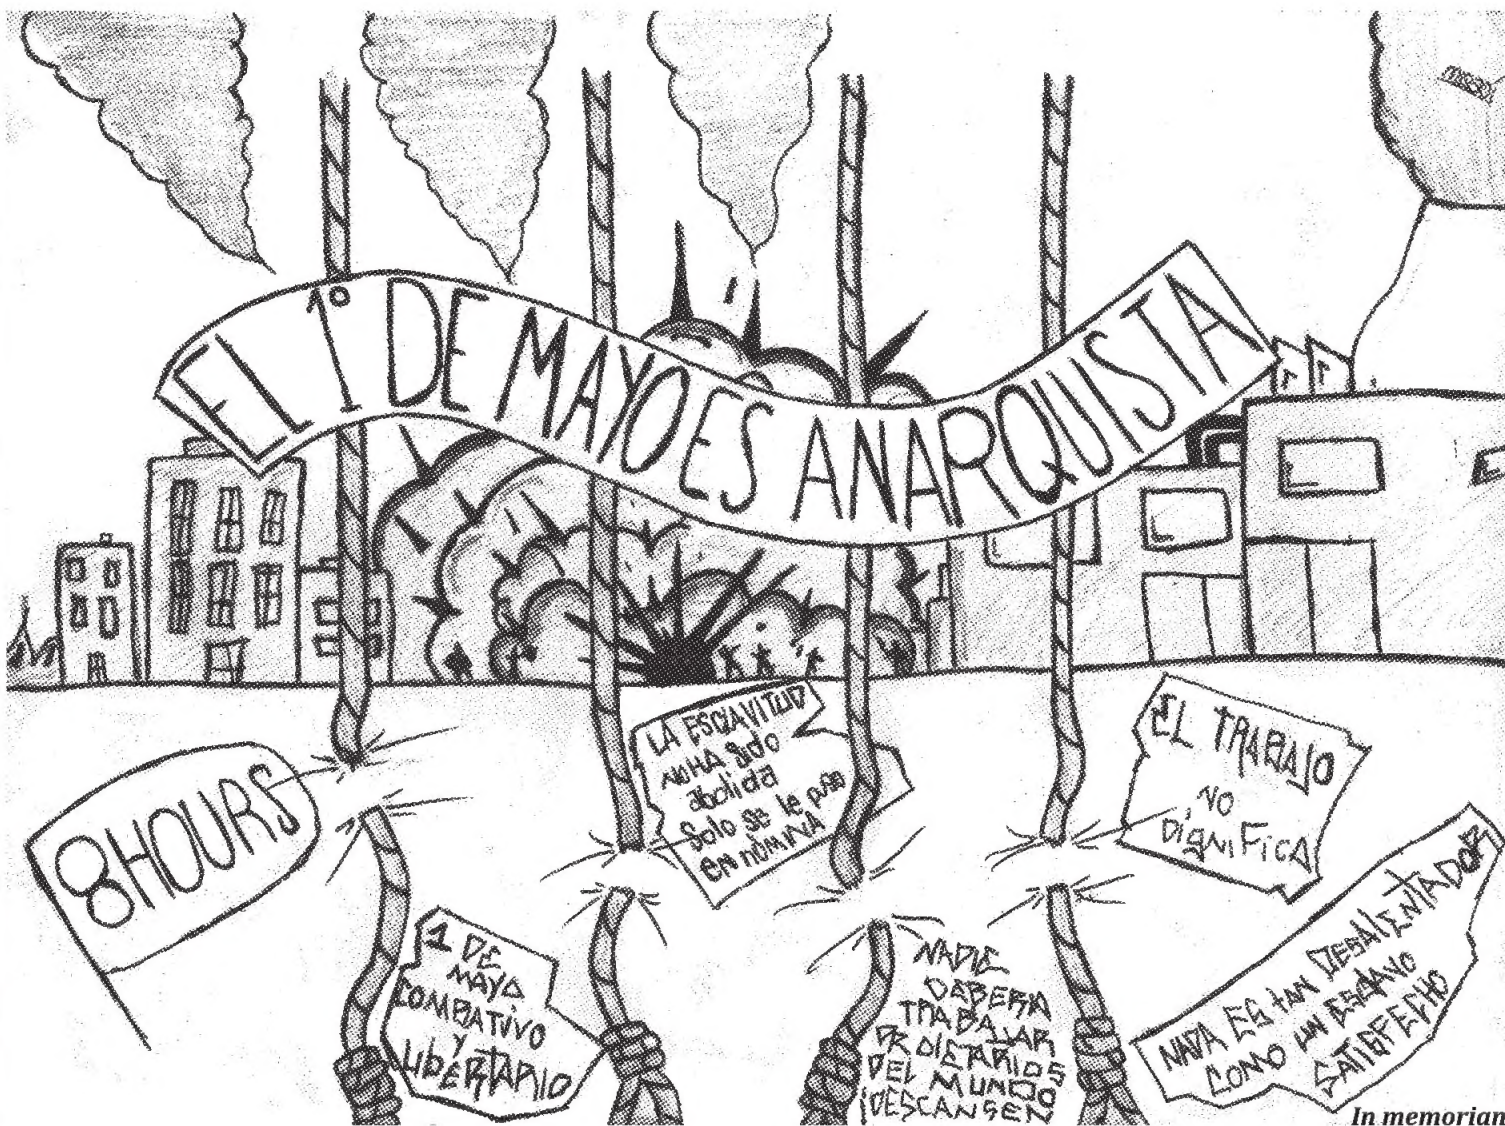 EL 1º DE MAYO ES ANARQUISTA
8 HOURS
LA ESCLAVITUD
NO HA SIDO
abolida
Solo se le puso
en NÓMINA
EL TRABAJO
NO
DigNiFicA
1 DE
MAYO
COMBATIVO
Y
LibERTARIO
NADIE
DEBERIA
TRABAJAR
PROLETARIOS
DEL MUNDO
¡DESCANSEN
NADA ES tAN DESALENTADOR
COMO UN ESCLAVO
SATISFECHO
In memorian